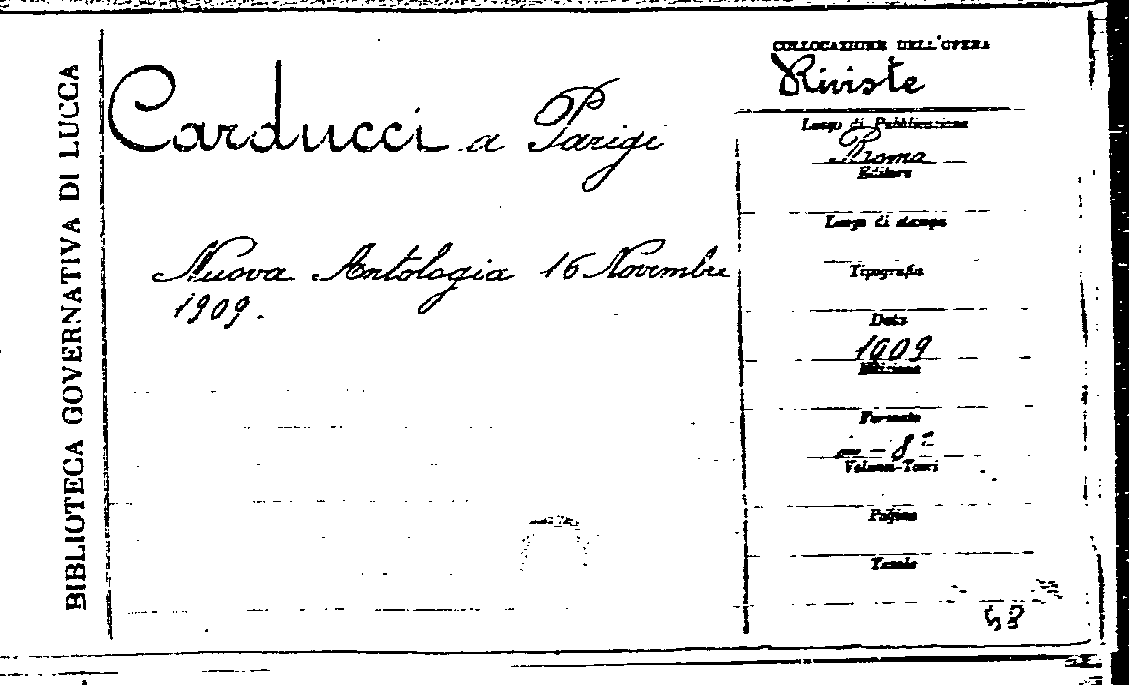 BIBLIOTECA GOVERNATIVA DI LUCCA
Carducci a Parigi
Nuova Antologia 16 Novembre
1909.
COLLOCAZIONE DELL'OPERA
Riviste
Luogo di Pubblicazione
Roma
Editore
Luogo di stampa
Tipografia
Data
1909
Edizione
Formato
in - 8°
Volumi-Tomi
Pagine
Tavole